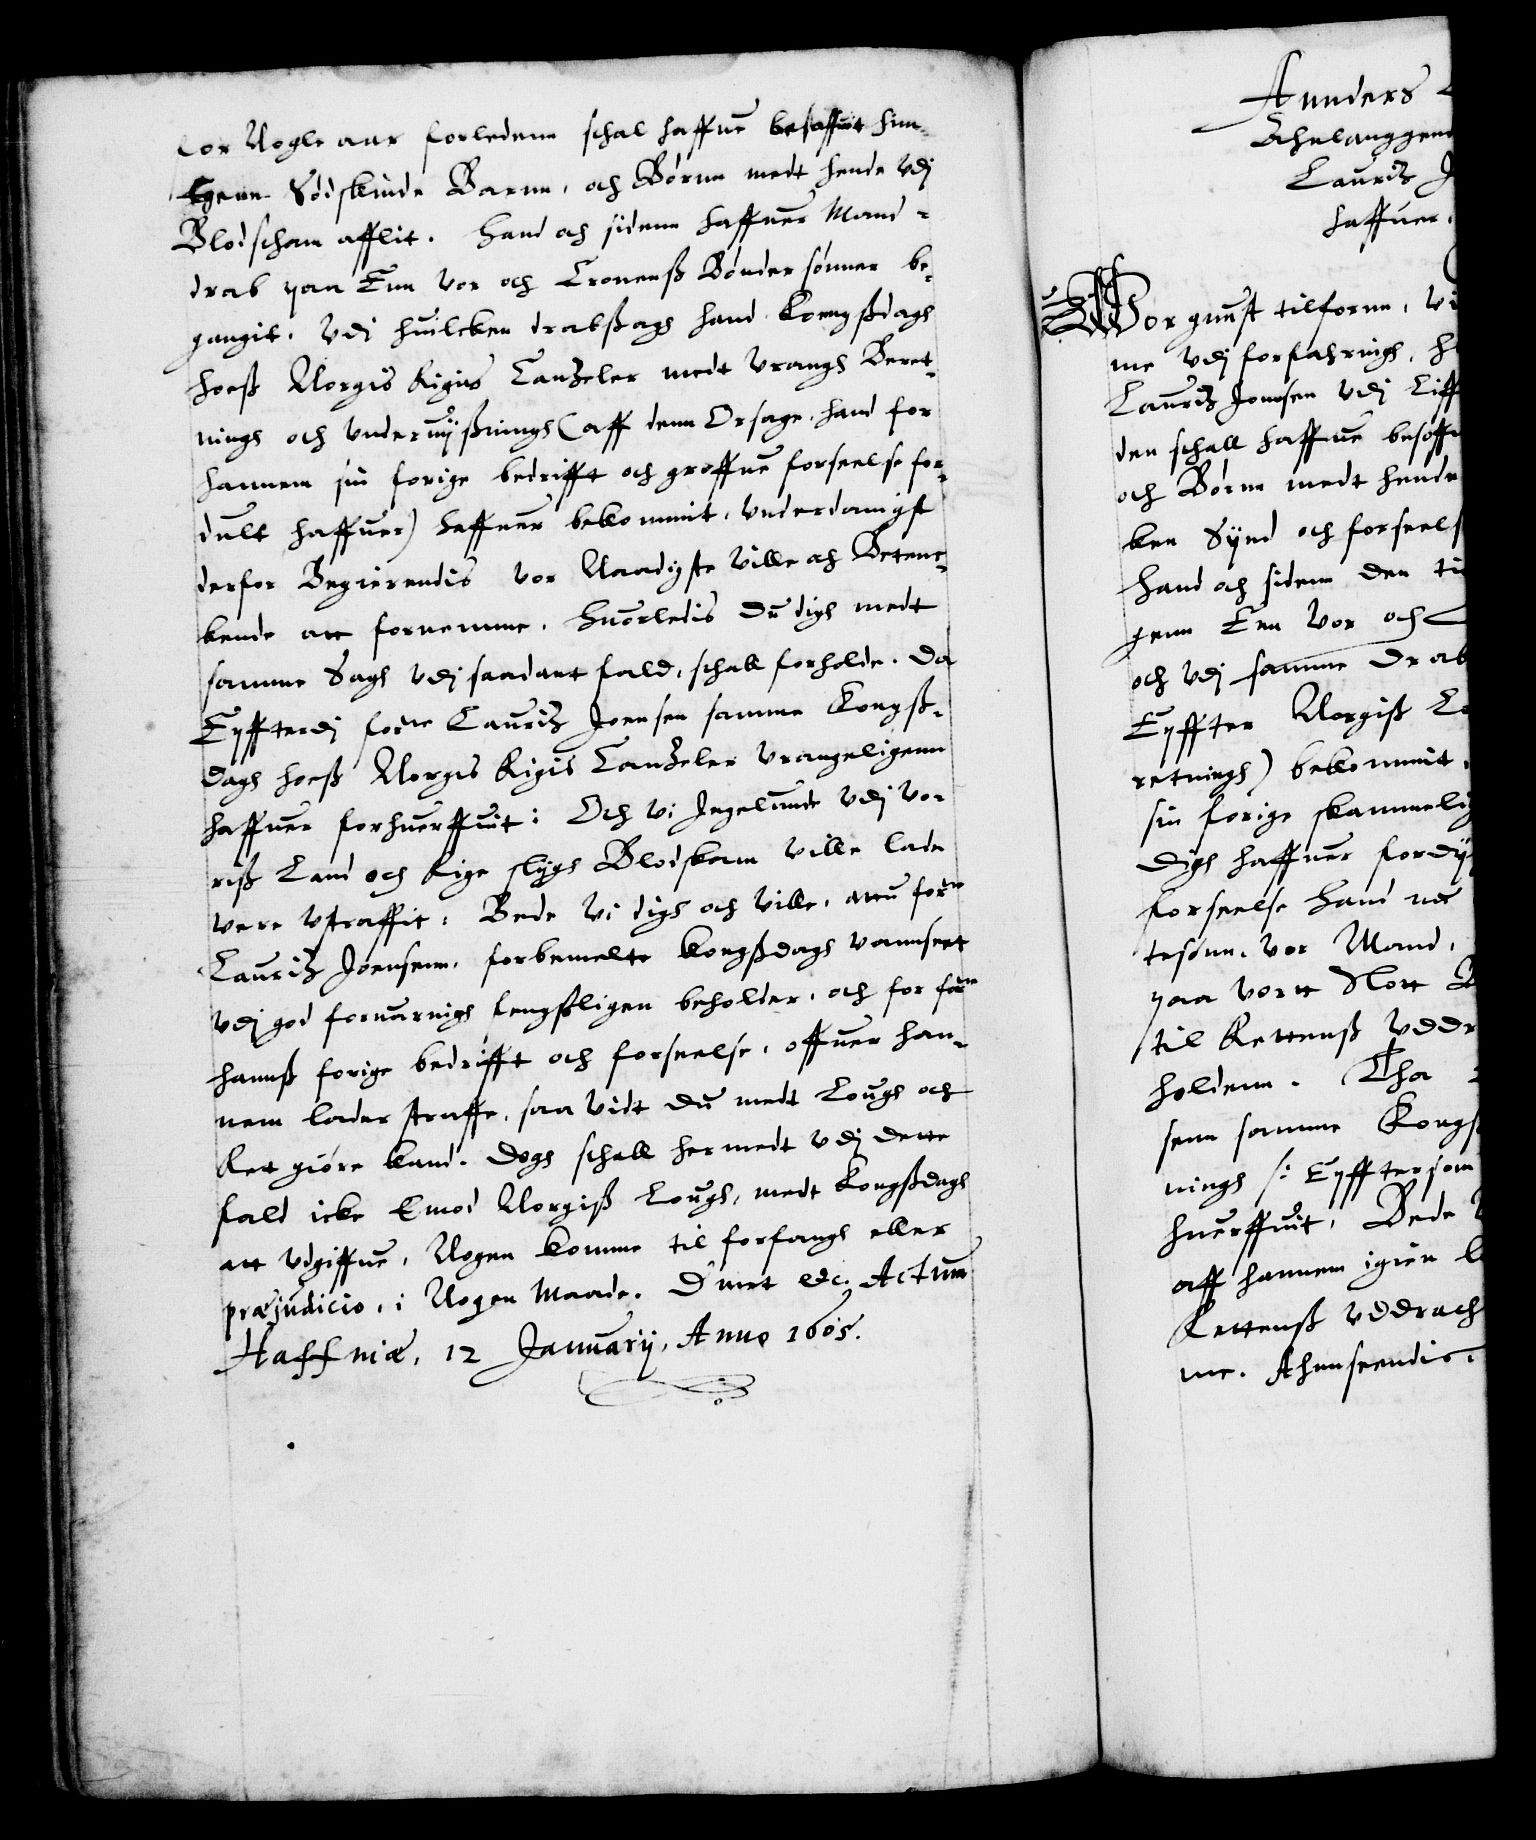 for Nogle aar forledenn schal haffue besoffuit sin
Egenn Sødskinde Barnn, och Børnn medt hende vdj
Blodscham afflit. Hand och sidenn haffuer Mand-
drab paa Enn vor och Cronenß Bønder sønner be-
gangit. Vdj huilcken drabßagh hand Kongßdagh
hoeß Norgis Rigis Cantzeler medt vrangh Beret-
ningh och vnderuijßningh (aff denn Orsage, hand for
hannem sin forige bedrifft och groffue forseelse for-
dult haffuer) haffuer bekommit, vnderdanigst
derfor Begierendis vor Naadigste ville och Betenc-
kende att fornemme. Huorledis du digh medt
samme Sagh vdj saadant fald, schall forholde. Da
Eyffterdj forne Lauritz Joensen samme Kongß-
dagh hoeß Norgis Rigis Cantzeler vrangeligenn
haffuer forhuerffuit: Och vi Ingelunde vdj vor
riß Land och Rige sligh Blodskam ville lade
vere vstraffit: Bede vi digh och ville, attu forne
Lauritz Joensenn, forbemelte kongßdagh vannseet
vdj god foruaringh fengßligen beholder, och for forne
hannß forige bedrifft och forseelse, offuer han-
nem lader straffe, saa vidt du medt Lough och
Rett giøre kand. Dogh schall hermedt vdj dette
fald icke Emod Norgiß Lough, medt Kongßdagh
att vdgiffue, Nogen komme til forfangh eller
præjudicio, i Nogen Maade. Dmet etc. Actum
Haffniæ, 12 Januarij, Anno 1605.
Annders
Ahnlanggend
Lauritz J
haffuer
Wor gunst tilfornn, Vi
me vdj forfahringh, h
Lauritz Jonsen vdj Liff
den schall haffue besoff
och Børnn medt hende
ken Synd och forseels
Hand och sidenn den ti
genn Enn vor och C
och vdj samme Drab
Eyffter Norgiß Lo
retningh) bekommit,
sin forige skammelig
digh haffuer fordy
forseelse hand nu
tesønn, vor Mand,
paa vortt Slott B
til Rettenß vddr
holdenn. Tha
senn samme Kongß
ningh /: Eyfftersom
huerffuit, Bede V
aff hannem igien l
Rettenß vddrach
me. Ahnseendis,